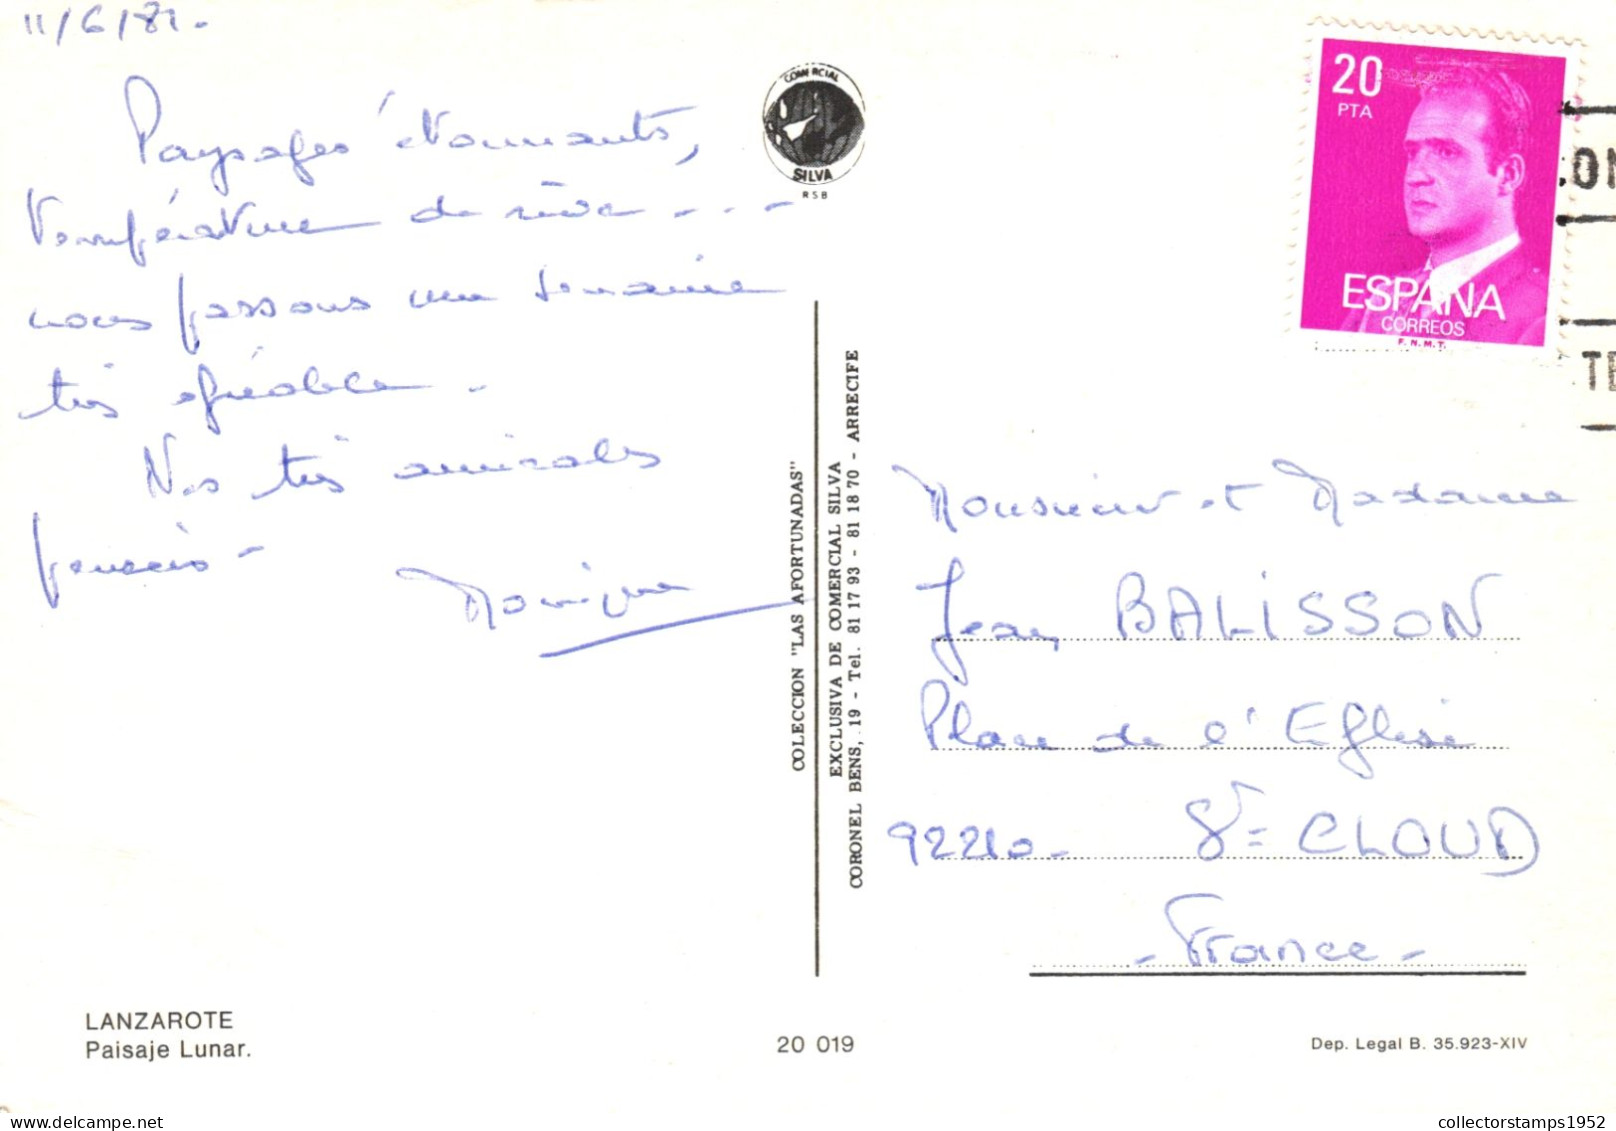 11/6/81.
Paysages étonnants,
température de rêve - - -
nous passons une semaine
très agréable.
Nos très amicales
pensées -
Monique
COMERCIAL
SILVA
RSB
COLECCION "LAS AFORTUNADAS"
EXCLUSIVA DE COMERCIAL SILVA
CORONEL BENS, 19 - Tel. 81 17 93 - 81 18 70 - ARRECIFE
20
PTA
ESPAÑA
CORREOS
F.N.M.T.
Monsieur et Madame
Jean BALISSON
Place de l'Eglise
92210 - St = CLOUD
- France -
LANZAROTE
Paisaje Lunar.
20 019
Dep. Legal B. 35.923-XIV
collectorstamps1952